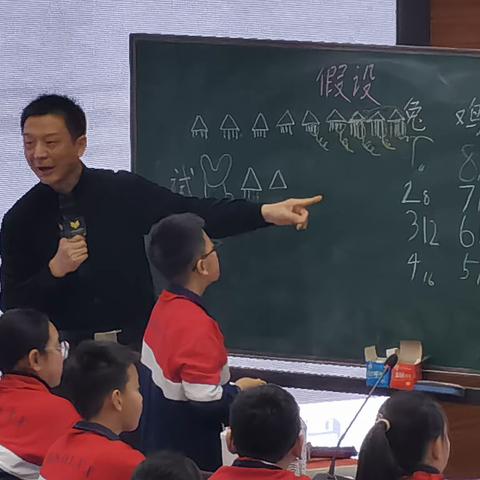 假设
兔 鸡
试
1 8
2 8 7
3 12 6
4 16 5